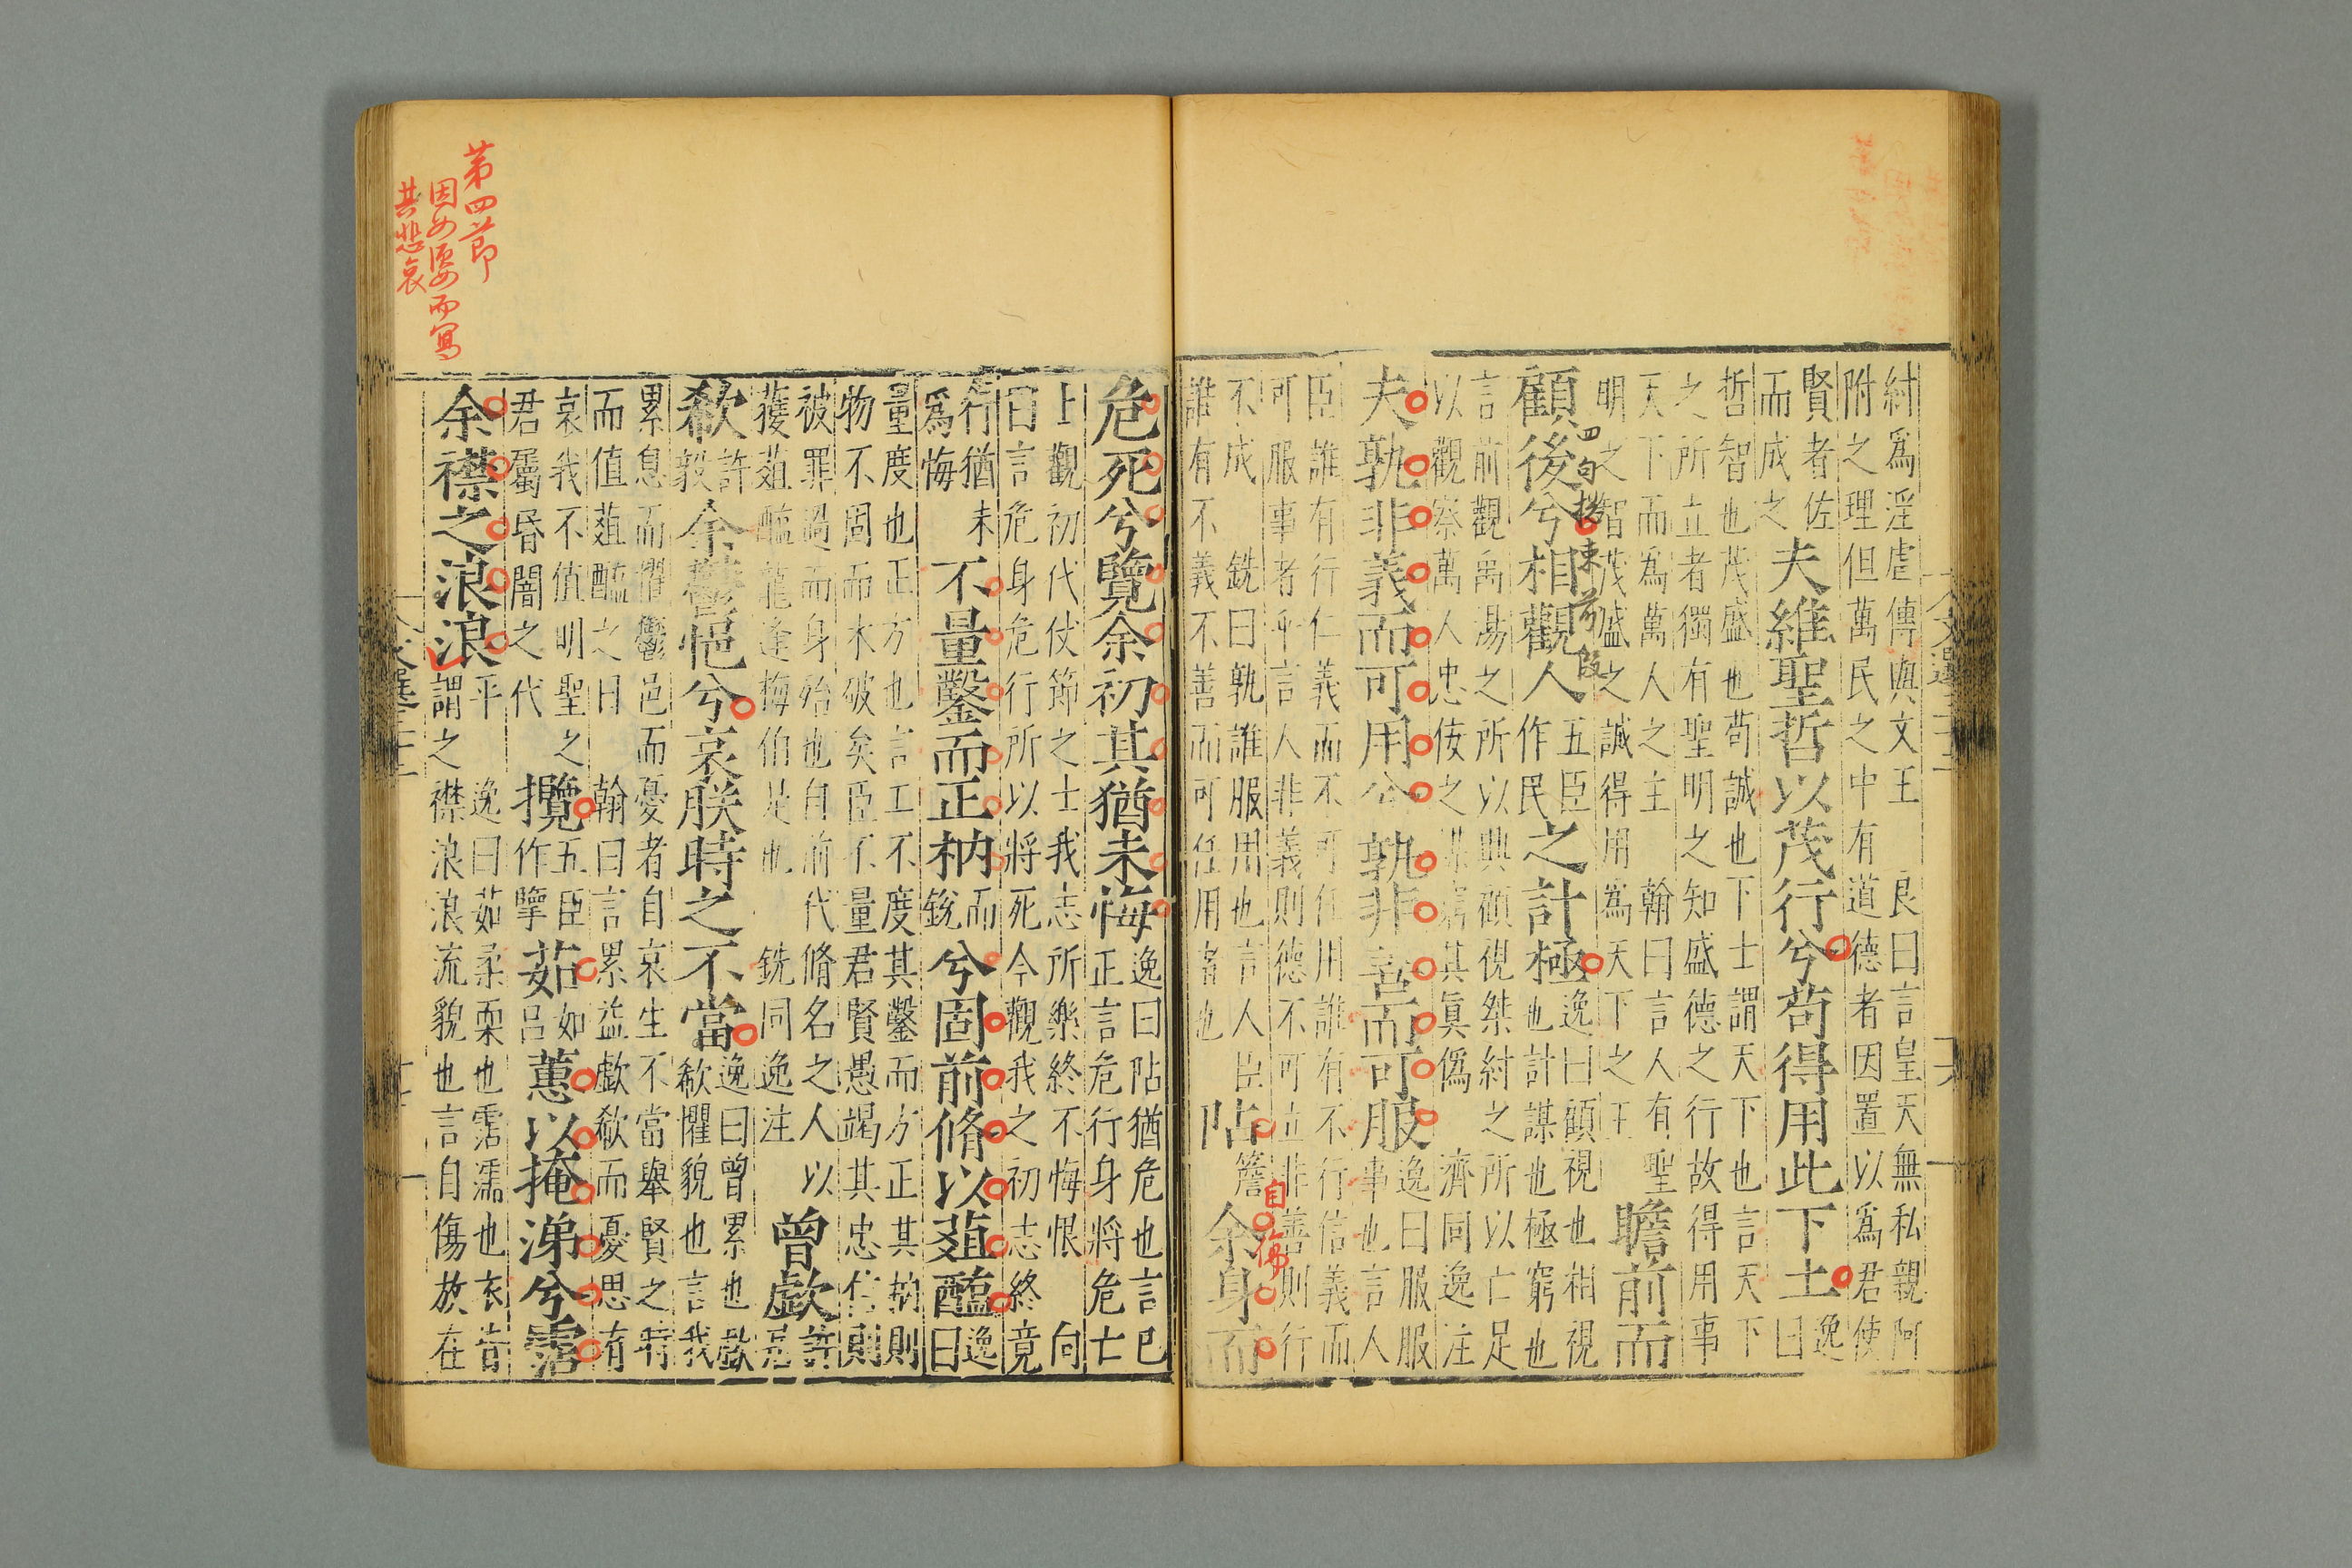 紂爲淫虐傳與文王　良曰言皇天無私親阿
附之理但萬民之中有道德者因置以爲君使
賢者佐
而成之
夫維聖哲以茂行兮苟得用此下土
逸
曰
哲智也茂盛也苟誠也下土謂天下也言天下
之所立者獨有聖明之知盛德之行故得用事
天下而爲萬人之主　翰曰言人有聖
明之智茂盛之誠得用爲天下之王
瞻前而
四句 束前段
顧後兮相觀人
五臣
作民
之計極
逸曰顧視也相視
也計謀也極窮也
言前觀禹湯之所以興顧視桀紂之所以亡足
以觀察萬人忠佞之謀窮其眞僞　濟同逸注
夫孰非義而可用兮孰非善而可服
逸曰服服
事也言人
臣誰有行仁義而不可任用誰有不行信義而
可服事者乎言人非義則德不可立非善則行
不成　銑曰孰誰服用也言人臣
誰有不義不善而可任用者也
阽
簷
余身而
危死兮覽余初其猶未悔
逸曰阽猶危也言已
正言危行身將危亡
上觀初代伏節之士我志所樂終不悔恨　向
曰言危身危行所以將死今觀我之初志終竟
行猶未
爲悔
不量鑿而正枘
而
銳
兮固前脩以葅醢
逸
曰
量度也正方也言工不度其鑿而方正其枘則
物不固而木破矣臣不量君賢愚竭其忠信則
被罪過而身殆也自前代脩名之人以
獲葅醢龍逢梅伯是也　銑同逸注
曾歔
許
居
欷
許
毅
余鬱悒兮哀朕時之不當
逸曰曾累也歔
欷懼貌也言我
累息而懼鬱邑而憂者自哀生不當舉賢之時
而值葅醢之日　翰曰言累益歔欷而憂思有
哀我不值明聖之
君屬昏闇之代
攬
五臣
作擥
茹
如
呂
蕙以掩涕兮霑
余襟之浪浪
平　逸曰茹柔耎也霑濡也衣眥
謂之襟浪浪流貌也言自傷放在
第四節
因女嬃而寫
其悲哀